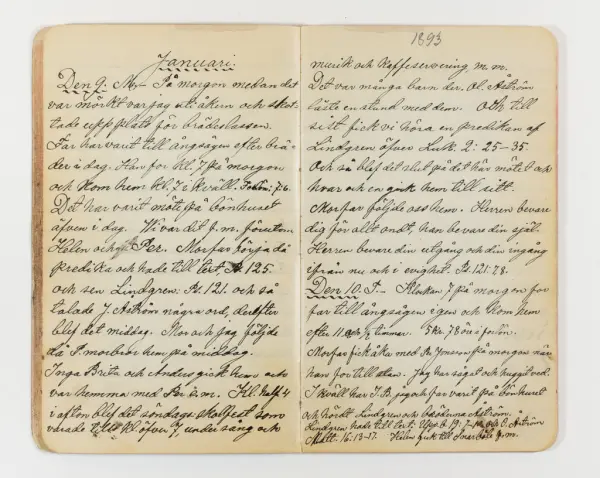 Januari.
Den 9. M.– På morgon medan det
var mörkt var jag ut i åken och skot-
tade upp plats för brädeslassen.
Far har varit till ångsågen efter brä-
der i dag. Han for kl. 7 på morgon
och kom hem kl. 7 i kväll.
Det har varit möte på bönhuset
äfven i dag. Vi var dit f.m. förutom
Helen och Per. Morfar först då
predika och hade till text Ps. 125.
och sen Lindgren Ps. 121. och så
talade J. Åström några ord, derefter
blef det middag. Mor och jag följde
då P. morbror hem på middag.
Inga Brita och Anders gick hem och
var hemma med Per e.m. Kl. half 4
i afton blef det söndagsskolfest som
varade till kl. öfver 7, under sång och
1893
musik och kaffeservering m.m.
Det var många barn der. Ol. Åström
läste en stund med dem. Och till
sitt fick vi höra en predikan af
Lindgren öfver Luk. 2: 25–35.
Och så blef det slut på det här mötet och
hvar och en gick hem till sitt.
Morfar följde oss hem. Herren bevare
dig för allt ondt, han bevare din själ.
Herren bevare din utgång och din ingång
ifrån nu och i evighet. Ps. 121: 7.8.
Den 10. T.– Klockan 7 på morgon for
far till ångsågen igen och kom hem
efter 11 timmar. 5 Kr. 78 öre
Morfar fick åka med på morgon när
han for till Jag har sågat och huggit ved.
I kväll har I.B. jag och far varit på bönhuset
och hördt Lindgren och bröderna Åström.
Lindgren hade till text: Upp.b. 19: 7– och O. Åström
Matt. 16: 13–17. Helen gick till e.m.